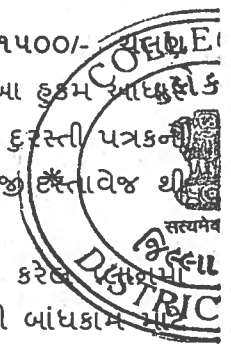 ૧૫૦૦/- ચલણ
આ હુકમ આધારે
દુરસ્તી પત્રકની
દસ્તાવેજ થી
કરેલ
બાંધકામ માટે
COLLE
सत्यमेव
જિલ્લા
DISTRIC